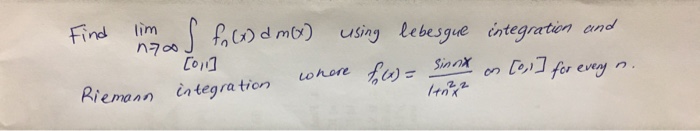 Find lim n→∞ ∫[0,1] fₙ(x) dm(x) using lebesgue integration and
Riemann integration where fₙ(x) = sin nx / 1+n²x² on [0,1] for every n.